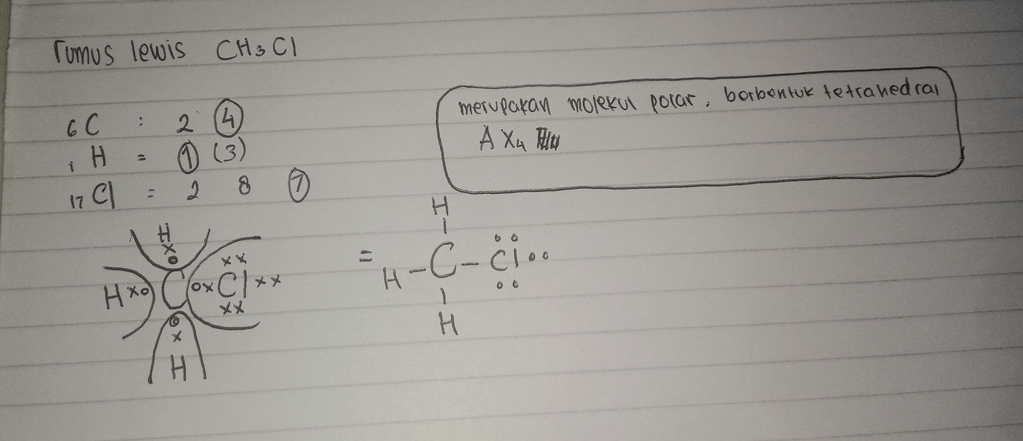 rumus lewis CH₃Cl
₆C : 2 ④
₁H = ① (3)
₁₇Cl = 2 8 ⑦
merupakan molekul polar, berbentuk tetrahedral
AX₄
H
H xo C ox Cl xx
H
=
H
H - C - Cl
H